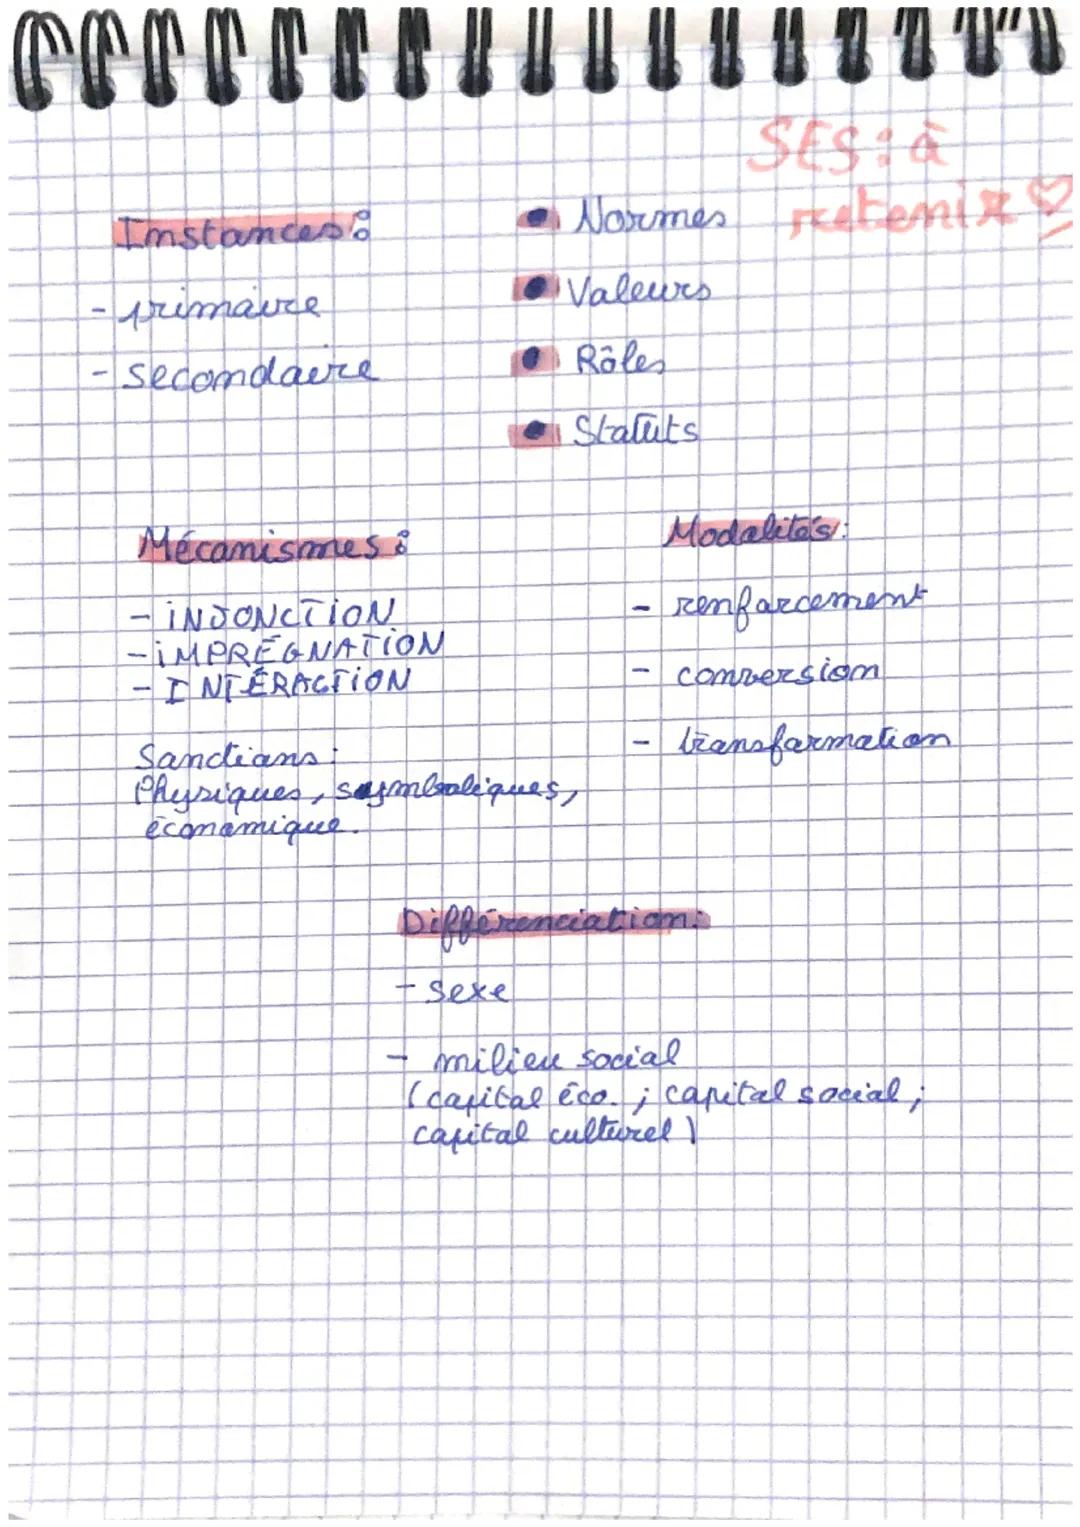 SES : à
retenir
Instances :
- primaire
- secondaire
Normes
Valeurs
Rôles
Statuts
Mécanismes :
- iNJONCTiON
- iMPRÉGNATiON
- INTÉRACTiON
Sanctions :
Physiques, symboliques,
économique.
Modalités :
- renforcement
- conversion
- transformation
Différenciation :
- sexe
- milieu social
(capital éco. ; capital social ;
capital culturel)